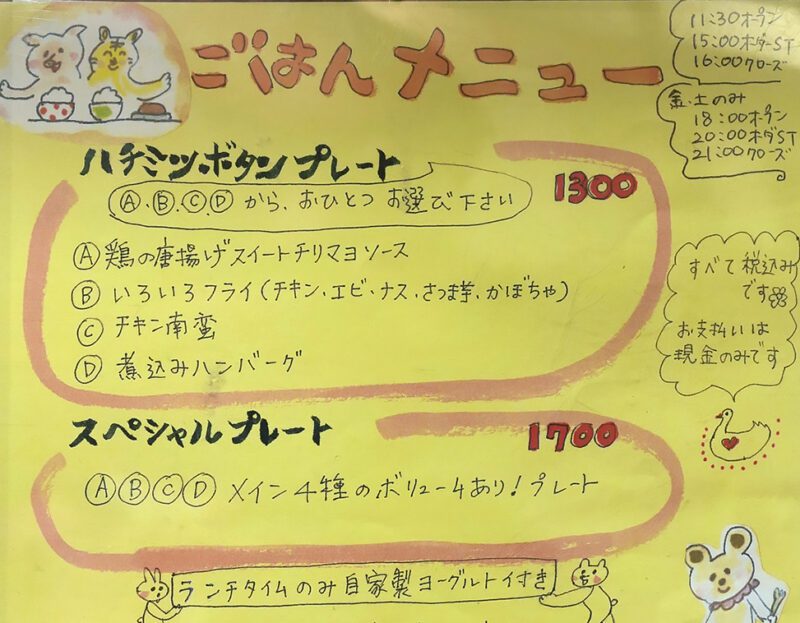 ごはんメニュー
11:30オープン
15:00オーダーST
16:00クローズ
金.土のみ
18:00オープン
20:00オーダST
21:00クローズ
ハチミツ.ボタンプレート
1300
Ⓐ.Ⓑ.Ⓒ.Ⓓから、おひとつ お選び下さい
Ⓐ鶏の唐揚げスイートチリマヨソース
Ⓑいろいろフライ(チキン、エビ・ナス、さつま芋、かぼちゃ)
Ⓒチキン南蛮
Ⓓ煮込みハンバーグ
すべて税込み
です
お支払いは
現金のみです
スペシャルプレート
1700
ⒶⒷⒸⒹメイン4種のボリュームあり!プレート
ランチタイムのみ自家製ヨーグルト付き